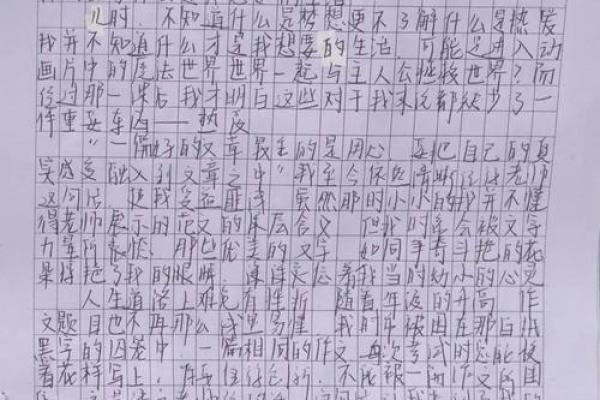 儿时,不知道什么是梦想更不了解什么是热爱
我并不知道什么才是我想要的生活,可能是进入动
画片中的魔法世界世界一起与主人公拯救世界?而
经过那一课后我才明白这些对于我来说都缺少了一
件重要东西——热爱
"一篇好的文章最主的是用心,要把自己的真
实感受融入到文章之中"我至今依然清晰记得老师
这句话,让我受益匪浅,虽然那时小小的我并不懂
得老师展示的范文的深层含义,但我时常会被文字
力量所震惊,那些优美的文字,如同争奇斗艳的花
朵 了我的眼睛, 着我当时幼小的心灵
人生道路上难免有挫折,随着年级的升高,作
文题目也不再那么 易懂,我时常被困在那白纸
黑字的囚笼中,一篇相同的作文,每次考试时总能换
着花样写上, 不能被一间作文的围